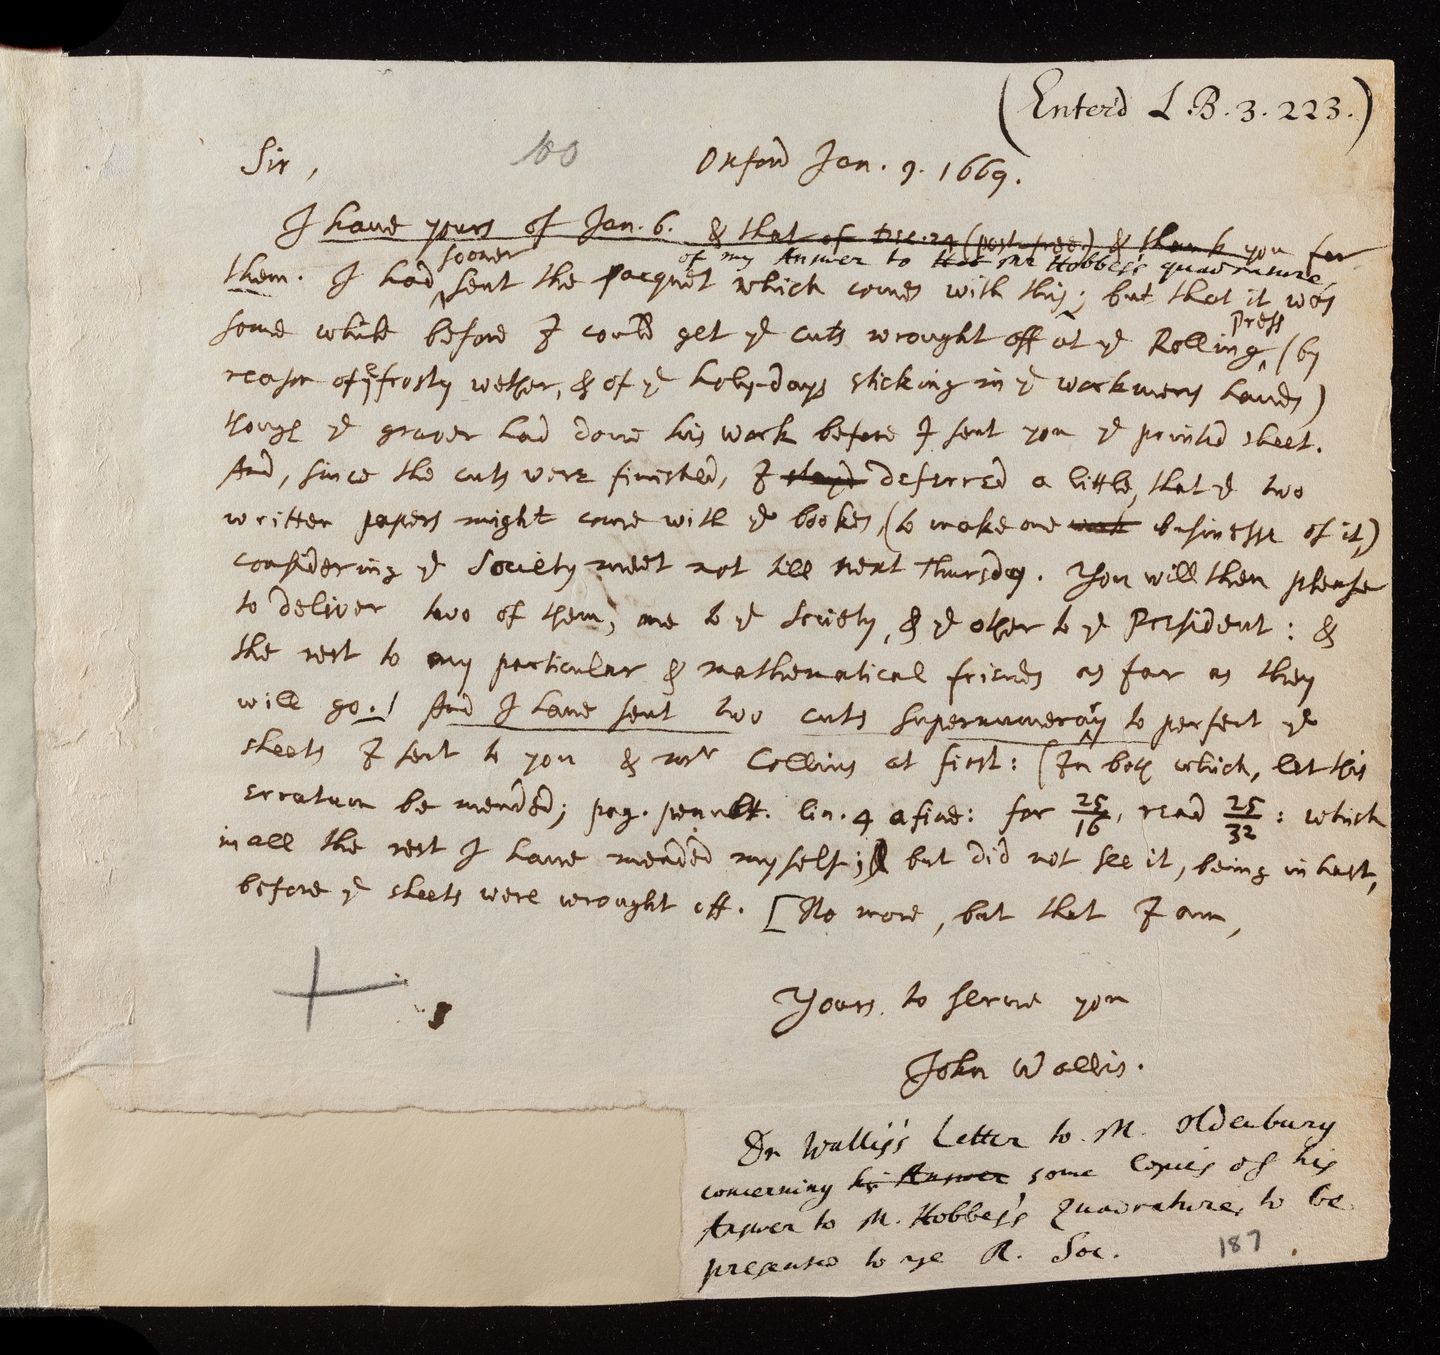 (Enter'd L.B.3.223.)
Sir, 160 Oxford Jan. 9. 1669.
I have yours of Jan. 6. & that of Dec. 29 (post-free) & thank you for
sooner of my Answer to Mr Hobbes's quadrature,
them. I had sent the pacquet which comes with this; but that it was
some while before I could get ye cuts wrought off at ye Rolling press (by
reason of ye frosty wether, & of ye holy-days sticking in ye workmens hands)
though ye graver had done his work before I sent you ye printed sheet.
And, since the cuts were finished, I stayd deferred a little, that ye two
written papers might come with ye bookes, (to make one work businesse of it,)
considering ye Society meet not till next Thursday. You will then please
to deliver two of them, one to ye Society, & ye other to ye President: &
the rest to my particular & mathematical friends as far as they
will go./ And I have sent two cuts supernumerary to perfect ye
sheets I sent to you & Mr Collins at first: (In both which, let this
erratum be mended; pag. penult. lin. 4 a fine: for 25/16, read 25/32: which
in all the rest I have mended my self; but did not see it, being in hast,
before ye sheets were wrought off. [No more, but that I am,
Yours to serve you
John Wallis.
Dr Wallis's Letter to M. Oldenburg
concerning his Answer some Copies of his
Answer to M. Hobbes's Quadrature, to be
presented to ye R. Soc. 187